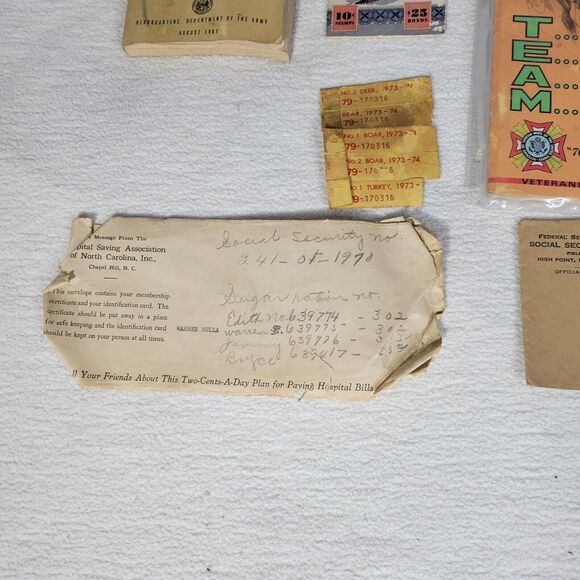 HEADQUARTERS, DEPARTMENT OF THE ARMY
AUGUST 1961
10¢
STAMPS
$25
BONDS
NO. 2 DEER, 1973-
79-170316
BEAR, 1973-74
79-170316
NO. 1 BOAR, 1973-74
79-170316
NO. 2 BOAR, 1973-74
NO. 1 TURKEY, 1973-
79-170316
TEAM
VETERANS
FEDERAL
SOCIAL
HIGH POINT,
Message From The
Saving Association
of North Carolina, Inc.,
Chapel Hill, N. C.
This envelope contains your membership
certificate and your identification card. The
certificate should be put away in a place
for safe keeping and the identification card
should be kept on your person at all times.
WARREN BULLA
Social Security no.
241-01-1970
Sugar ration no.
Edith No. 639774 - 302
Warren S. 639775 -
Jimmy 639776 -
Bryce
Your Friends About This Two-Cents-A-Day Plan for Paying Hospital Bills